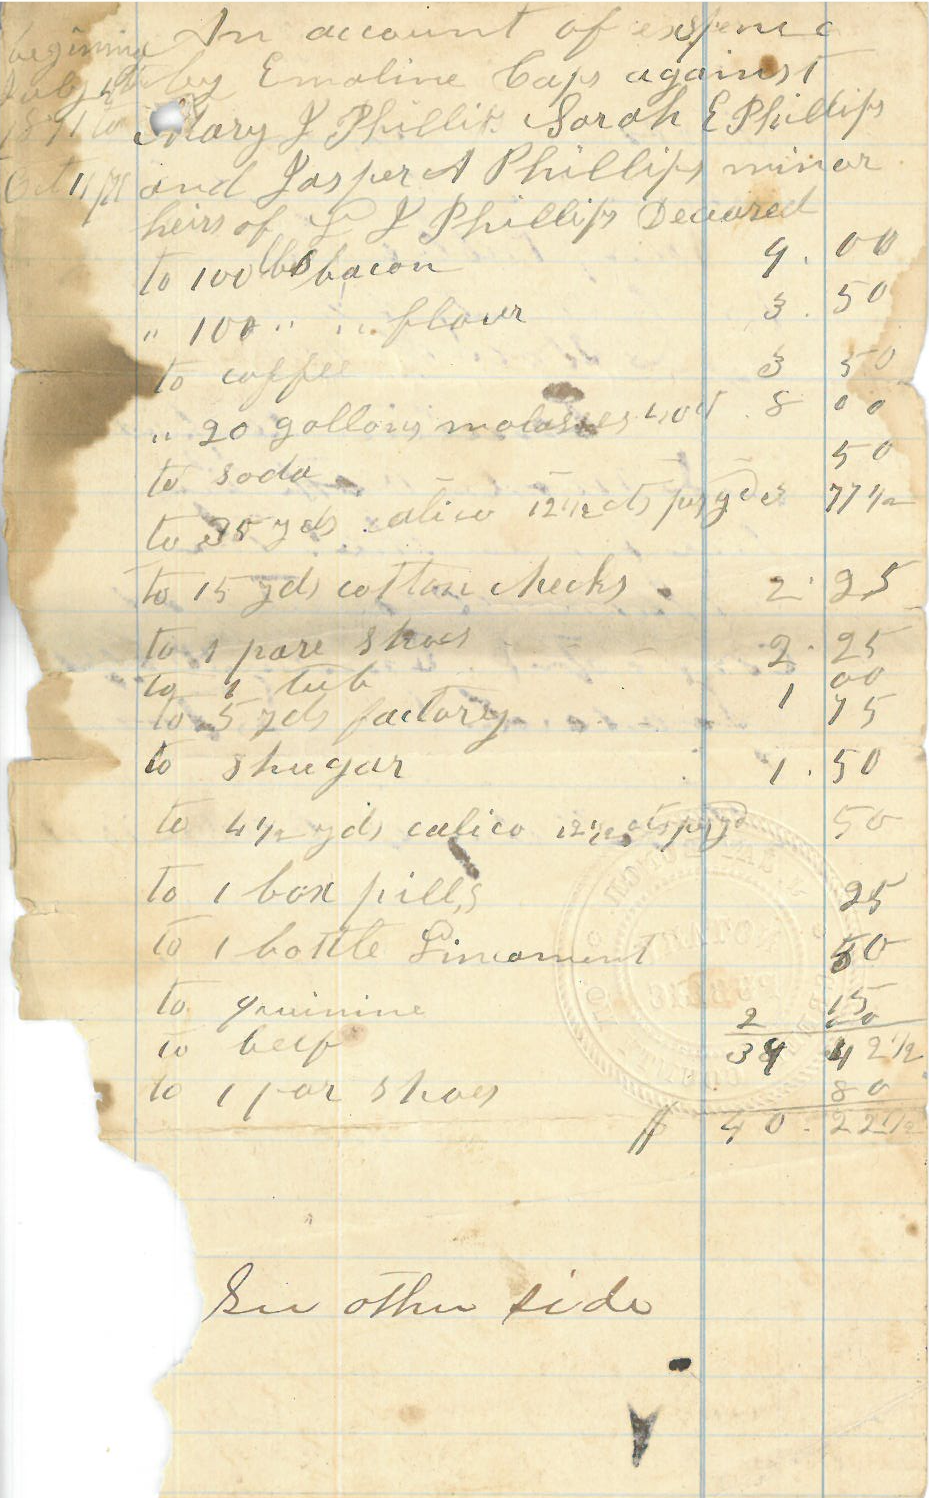 An account of expence
beginning
July 4th by Emoline Caps against
1871 to Mary J Phillips Sarah E Phillips
Oct 11/71 and Jasper A Phillips minor
heirs of J Phillips Deceased
to 100 lbs bacon 9.00
" 100 " " flour 3.50
to coffee 3 50
" 20 gallons molasses 40 8 00
to soda 50
to 35 yds calico 12 1/2 cts per yd 77 1/2
to 15 yds cotton checks 2.25
to 1 pare shoes 2.25
to 1 tub 1 00
to 5 yds factory 75
to shugar 1.50
to 4 1/2 yds calico 12 1/2 cts per yd 50
to 1 box pills 25
to 1 bottle Linament 50
to quinine 15
to beef 2 00
34 42 1/2
to 1 par shoes 80
$ 40.22 1/2
See other side